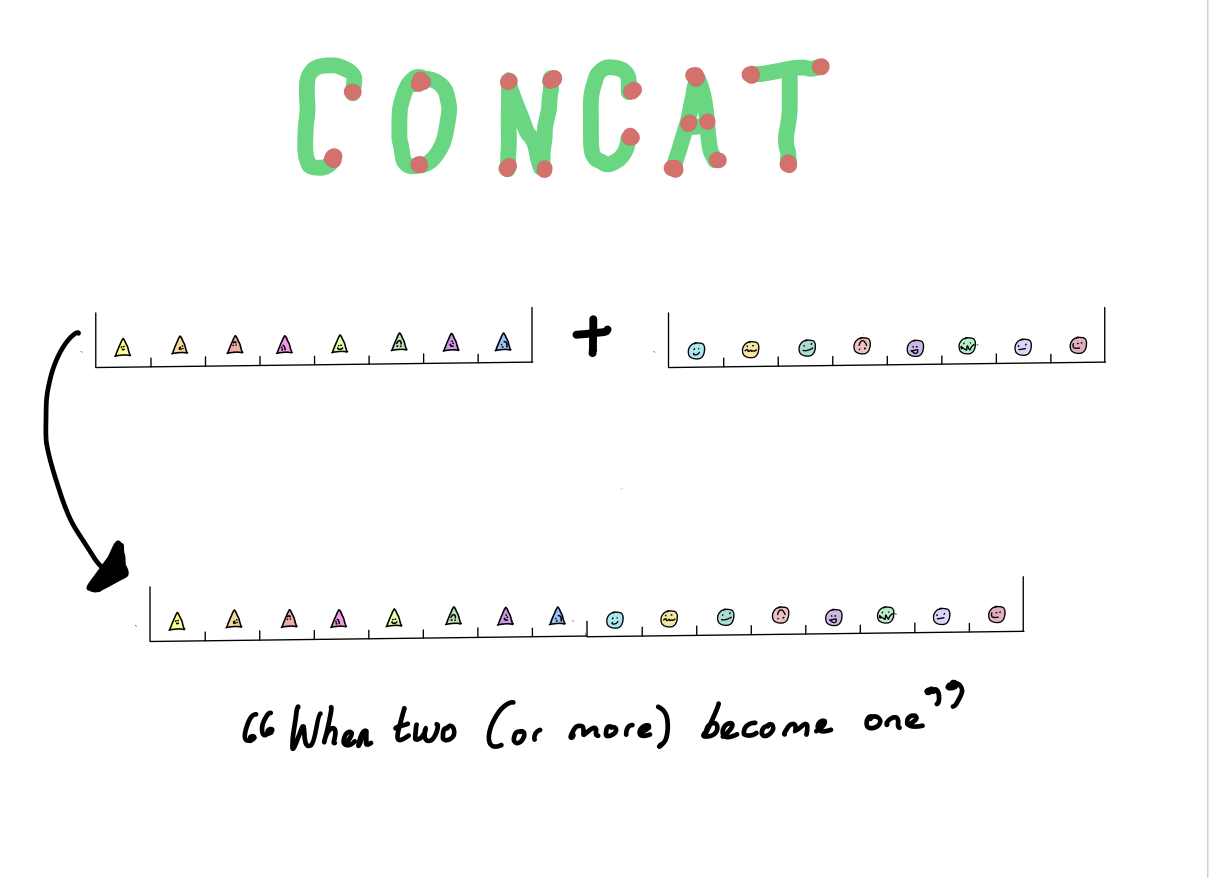 CONCAT
+
“When two (or more) become one”